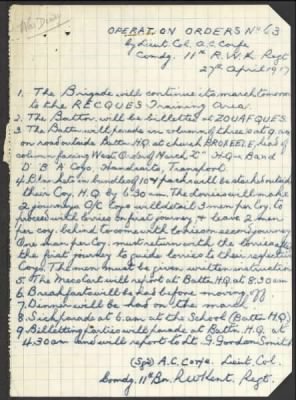 War Diary
OPERATION ORDERS No 63
by Lieut. Col. A.C. Corfe
Comdg. 11th R.W.K. Regt
27th April 1917
1. The Brigade will continue its march tomorrow
to the RECQUES Training Area.
2. The Battn will be billeted at ZOUAFQUES.
3. The Battn will parade in column of threes at 9. a.m.
on road outside Battn H.Q. at church head of
column facing West. Order of March "C" H.Q. & Band
D' B' A Coys Handcarts, Transport.
4. Blankets in bundles of 10 & packs will be stacked outside
their Coy. H.Q. by 6.30 a.m. The lorries will make
2 journeys. O/C Coys will detail 3 men per Coy. to
proceed with lorries on first journey & leave 2 men
per coy. behind to come with lorries on second journey.
One man per Coy. must return with the lorries after
the first journey to guide lorries to their respective
Coys. The men must be given written instructions
5. The Mess Cart will report at Battn H.Q. at 8.30 am
6. Breakfasts will be had before moving off
7. Dinners will be had on the march.
8. Sick parade at 6. am at the School (Battn H.Q.)
9. Billetting Parties will parade at Battn. H.Q. at
4.30 am and will report to Lt. G. Gordon Smith
(Sgd) A.C. Corfe. Lieut. Col.
Comdg. 11th Bn. R.W. Kent. Regt.